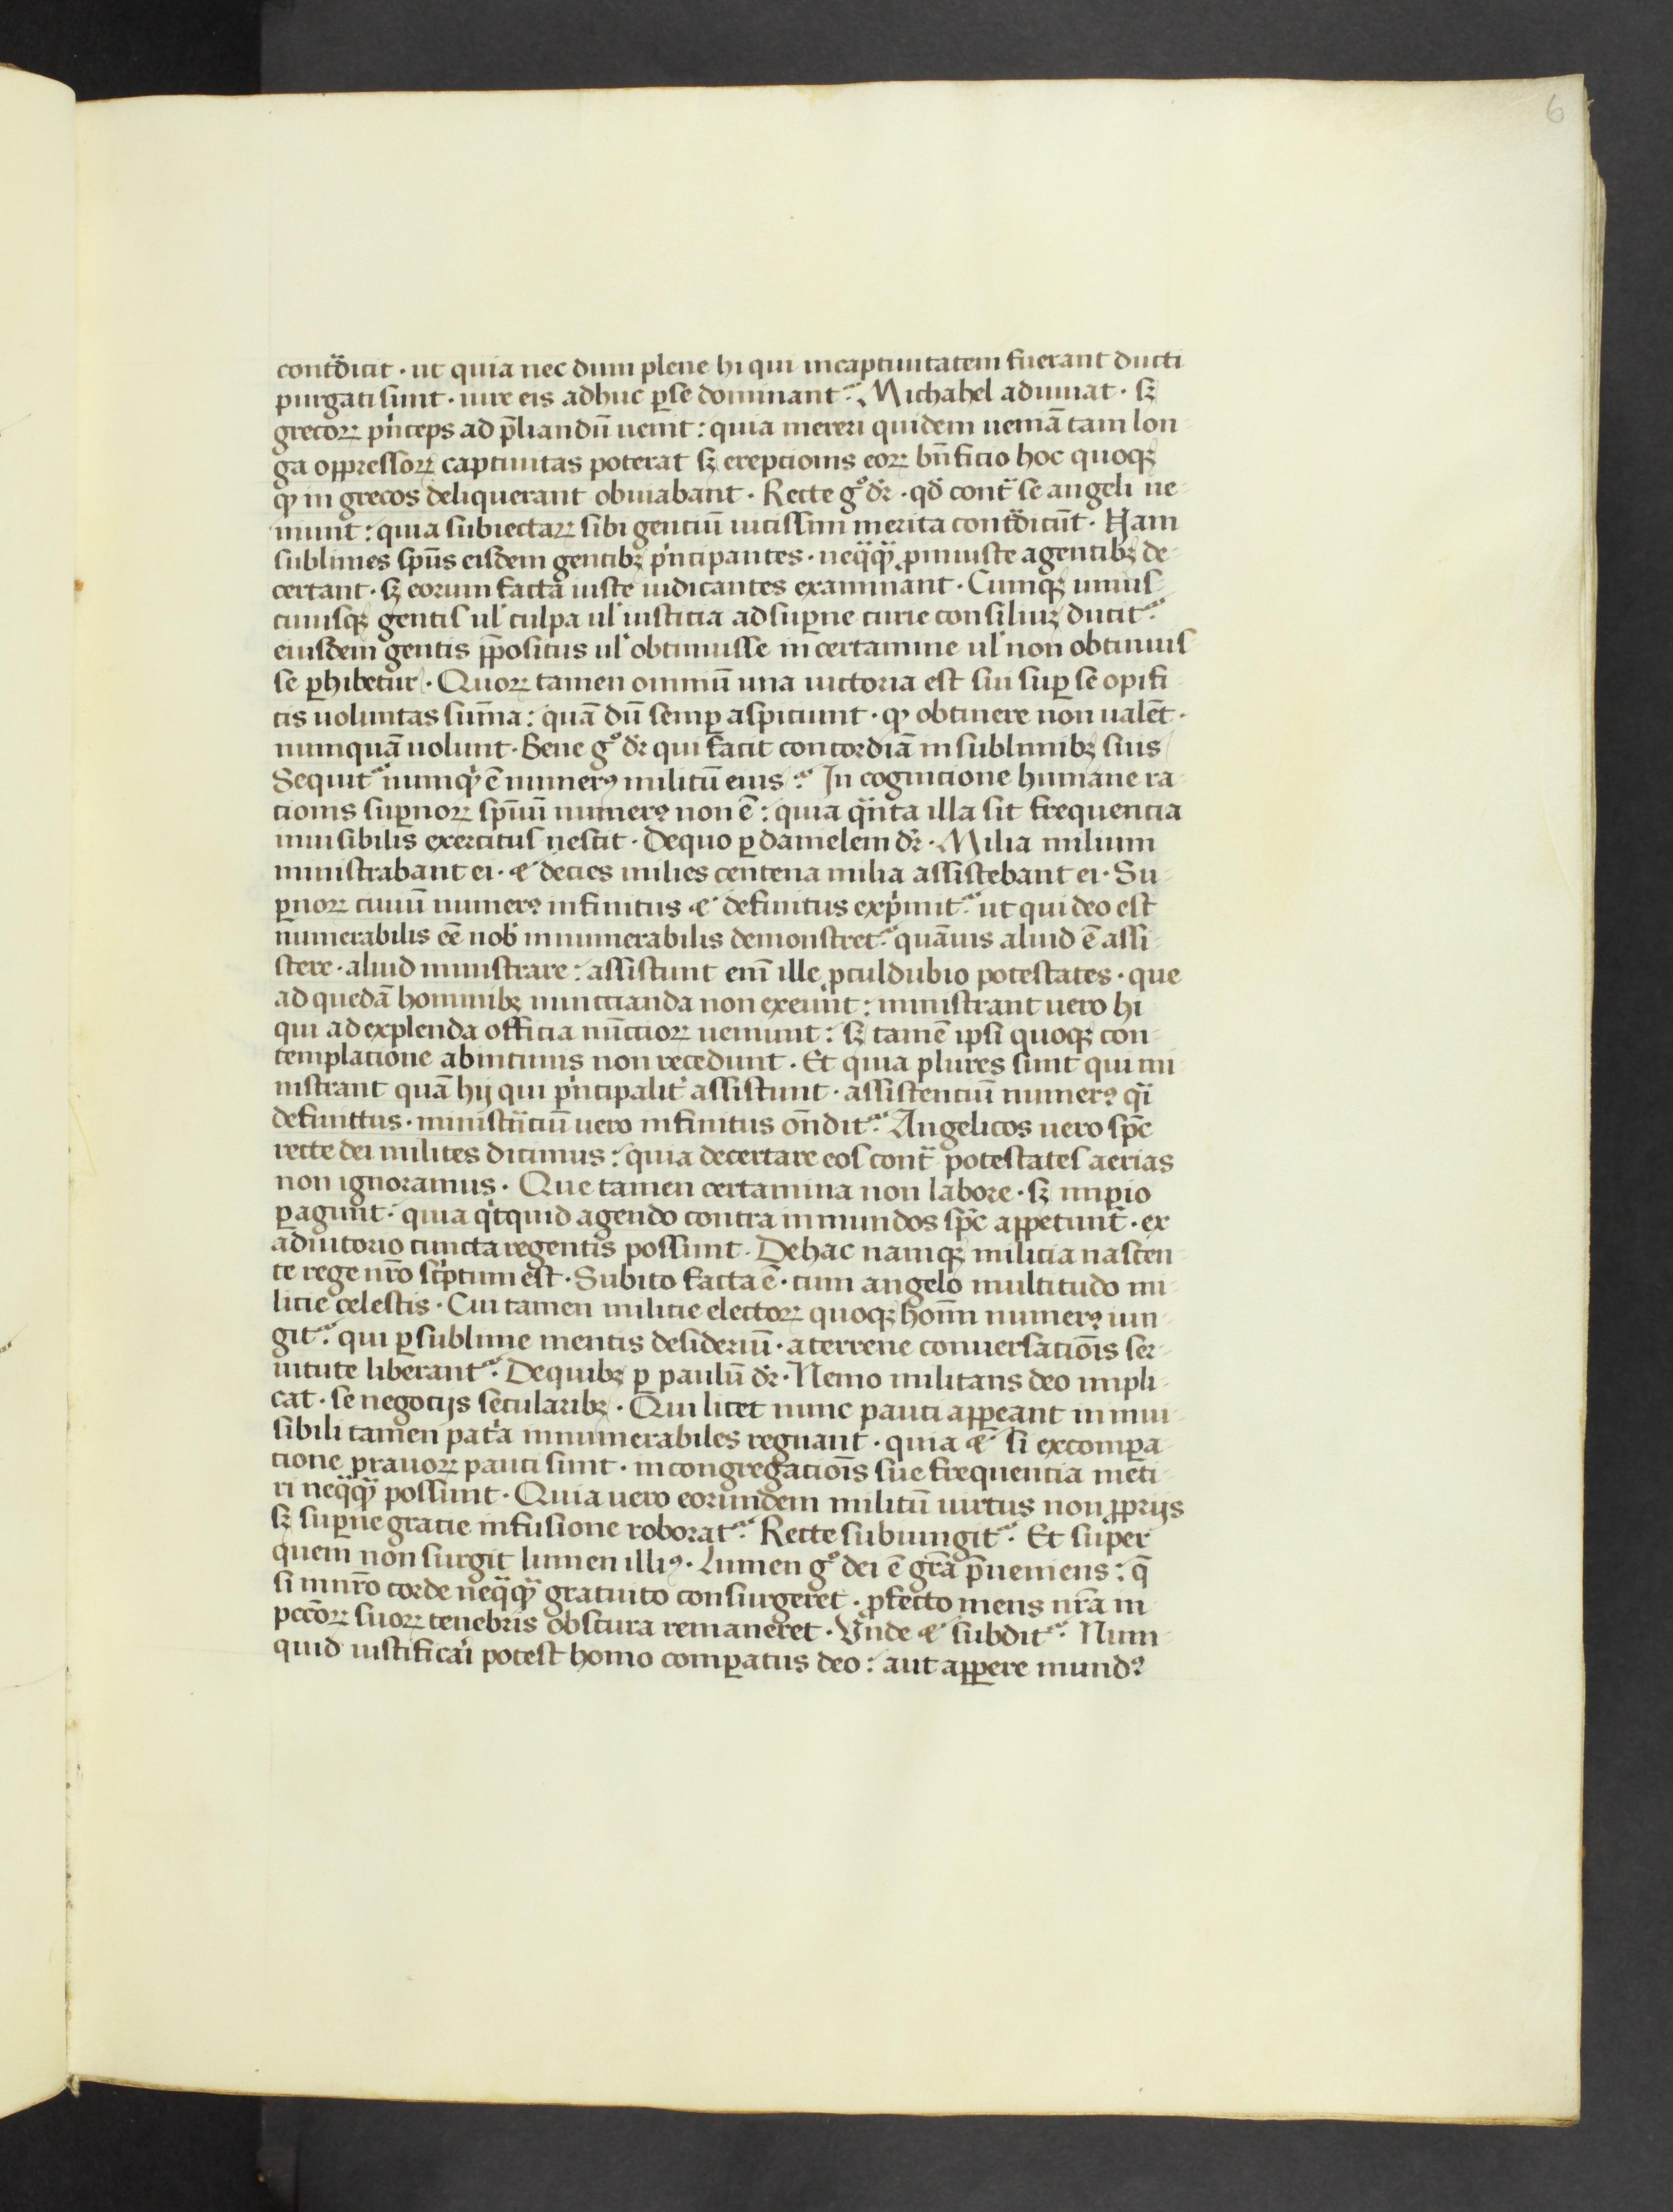 6
contᷓdicit · ut quia nec dum plene hi qui incaptiuitatem fuerant ducti
purgati sunt · iure eis adhuc ꝑse dominant᷑. Michahel adiuuat · sꝫ
grecoꝝ pͥnceps ad p̄liandū uenit : quia mereri quidem ueniā tam lon-
ga oppressoꝝ captiuitas poterat sꝫ ereptionis eoꝝ bn̄ficio hoc quoqꝫ
ꝙ in grecos deliquerant obuiabant · Recte gͦ dr̄ · qd̄ contᷓ se angeli ue-
niunt : quia subiectaꝝ sibi genciū uicissim merita contᷓdicūt · Nam
sublimes spūs eisdem gentibꝫ pͥncipantes · neqᷓqᷓ ꝓiniuste agentibꝫ de-
certant · sꝫ eorum facta iuste iudicantes examinant · Cumqꝫ unius-
cuiusqꝫ gentis ul̕ culpa ul̕ iusticia ad suꝑne curie consiliuꝫ ducit᷑.
eiusdem gentis p̄positus ul̕ obtinuisse in certamine ul̕ non obtinuis-
se ꝑhibetur · Quoꝝ tamen omniū una uictoria est sui suꝑ se opifi-
cis uoluntas sum̄a : quā dū semꝑ aspiciunt · ꝙ obtinere non ualēt ·
numquā uolunt · Bene gͦ dr̄ qui facit concordiā in sublimibꝫ suis
Sequit᷑ numqͥ ē numerꝰ militū eius. In cognicione humane ra-
tionis suꝑnoꝝ spūū numerꝰ non ē : quia qᷓnta illa sit frequencia
inuisibilis exercitus nescit · Dequo ꝑ danielem dr̄ · Milia milium
ministrabant ei · & decies milies centena milia assistebant ei · Su-
ꝑnoꝝ ciuiū numerꝰ infinitus & definitus expͥmit᷑. ut qui deo est
numerabilis eē nob̕ innumerabilis demonstret᷑. quāuis aliud ē assi-
stere · aliud ministrare : assistunt enī ille ꝓculdubio potestates · que
ad quedā hominibꝫ nunccianda non exeunt : ministrant uero hi
qui ad explenda officia nūccioꝝ ueniunt : sꝫ tamē ipsi quoqꝫ con-
templatione abintimis non recedunt · Et quia plures sunt qui mi-
nistrant quā hij qui pͥncipalit̕ assistunt · assistenciū numerꝰ qᷓi
definitus · ministᷓnciū uero infinitus ōndit᷑. Angelicos uero spc̄
recte dei milites dicimus : quia decertare eos contᷓ potestates aerias
non ignoramus · Que tamen certamina non labore · sꝫ imꝑio
ꝑagunt · quia qͥcquid agendo contra inmundos spc̄ appetunt · ex
adiutorio cuncta regentis possunt · Dehac namqꝫ milicia nascen-
te rege nr̄o scͥptum est · Subito facta ē · cum angelo multitudo mi-
licie celestis · Cui tamen milicie electoꝝ quoqꝫ hoīm numerꝰ iun-
git᷑. qui ꝑ sublime mentis desideriū · aterrene conuersatiōis ser-
uitute liberant᷑. Dequibꝫ ꝑ paulū dr̄ · Nemo militans deo impli-
cat · se negocijs secularibꝫ · Qui licet nunc pauci apꝑeant in inui-
sibili tamen patͥa innumerabiles regnant · quia & si excomꝑa-
tione prauoꝝ pauci sunt · in congregatiōis sue frequentia meti-
ri neqᷓqᷓ possunt · Quia uero eorundem militū uirtus non ꝓprijs
sꝫ suꝑne gracie infusione roborat᷑. Recte subiungit᷑. Et super
quem non surgit lumen illiꝰ · Lumen gͦ dei ē gr̄a p̄ueniens : q̄
si innr̄o corde neqᷓqᷓ gratuito consurgeret · ꝓfecto mens nr̄a in
pecc̄oꝝ suoꝝ tenebris obscura remaneret · Vnde & subdit᷑. Num-
quid iustificari potest homo comꝑatus deo : aut apꝑere mundꝰ